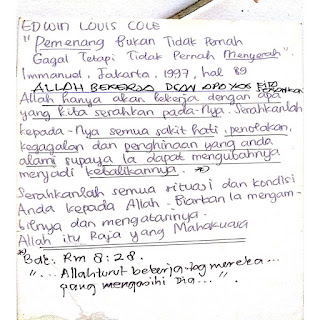 EDWIN LOUIS COLE
"Pemenang Bukan Tidak Pernah
Gagal Tetapi Tidak Pernah Menyerah".
Immanuel, Jakarta, 1997, hal 89
ALLAH BEKERJA DGN APA YG KITA
Allah hanya akan bekerja dengan apa
yang kita serahkan pada-Nya. Serahkanlah
kepada-Nya semua sakit hati, penolakan,
kegagalan dan penghinaan yang anda
alami supaya Ia dapat mengubahnya
menjadi kebalikannya. *)
Serahkanlah semua situasi dan kondisi
Anda kepada Allah. Biarkan Ia mengam-
bilnya dan mengatannya.
Allah itu Raja yang Mahakuasa
*) Bdk. Rm 8:28.
"... Allah turut bekerja ... mereka...
yang mengasihi Dia..."